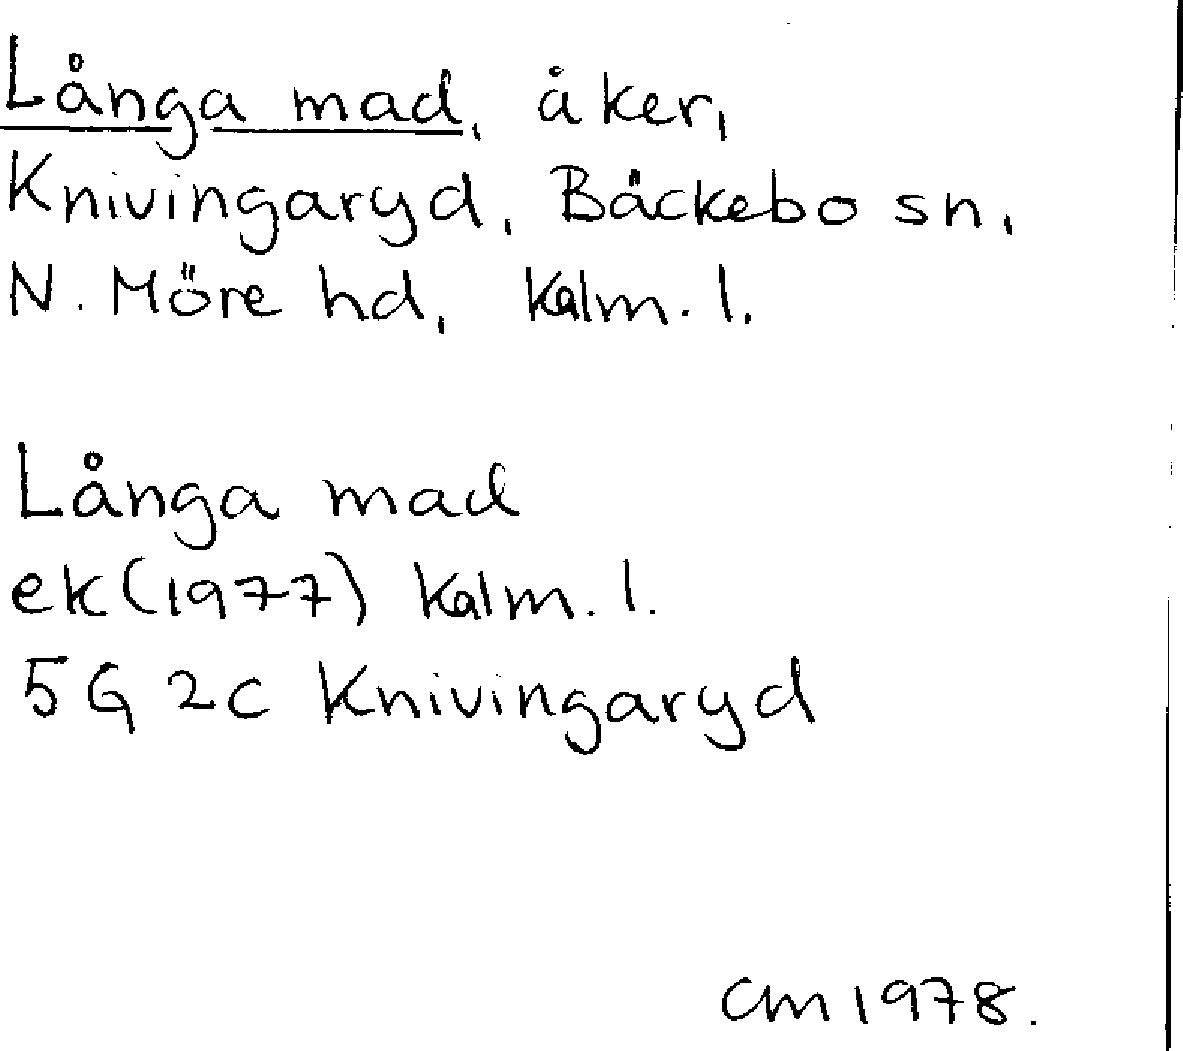 Långa mad, åker,
Knivingaryd, Bäckebo sn,
N. Möre hd, Kalm. l.
Långa mad
ek (1977) Kalm. l.
5G 2c Knivingaryd
CM 1978.